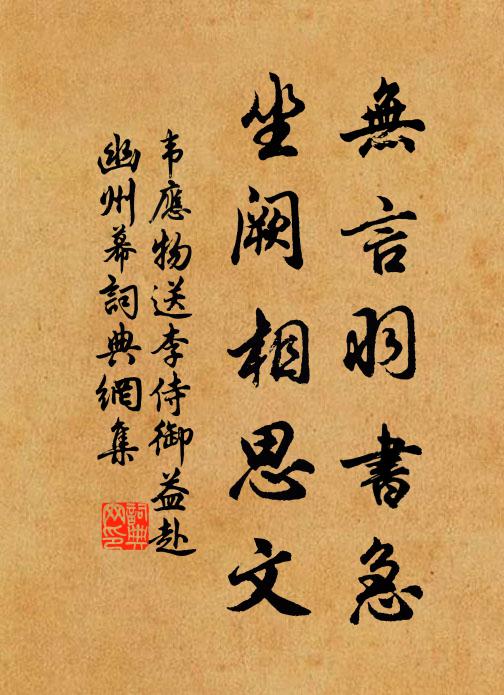 無言羽書急
坐阙相思文
韦應物送李侍御益赴
幽州幕詞典網集
詞典
网印